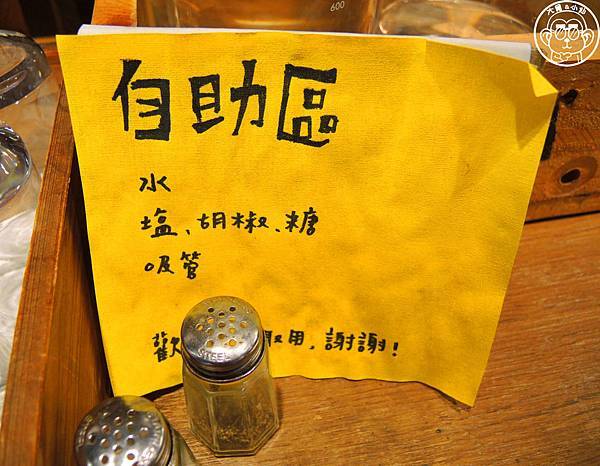 600
自助區
水
塩、胡椒、糖
吸管
歡 取用,謝謝!
STEEL